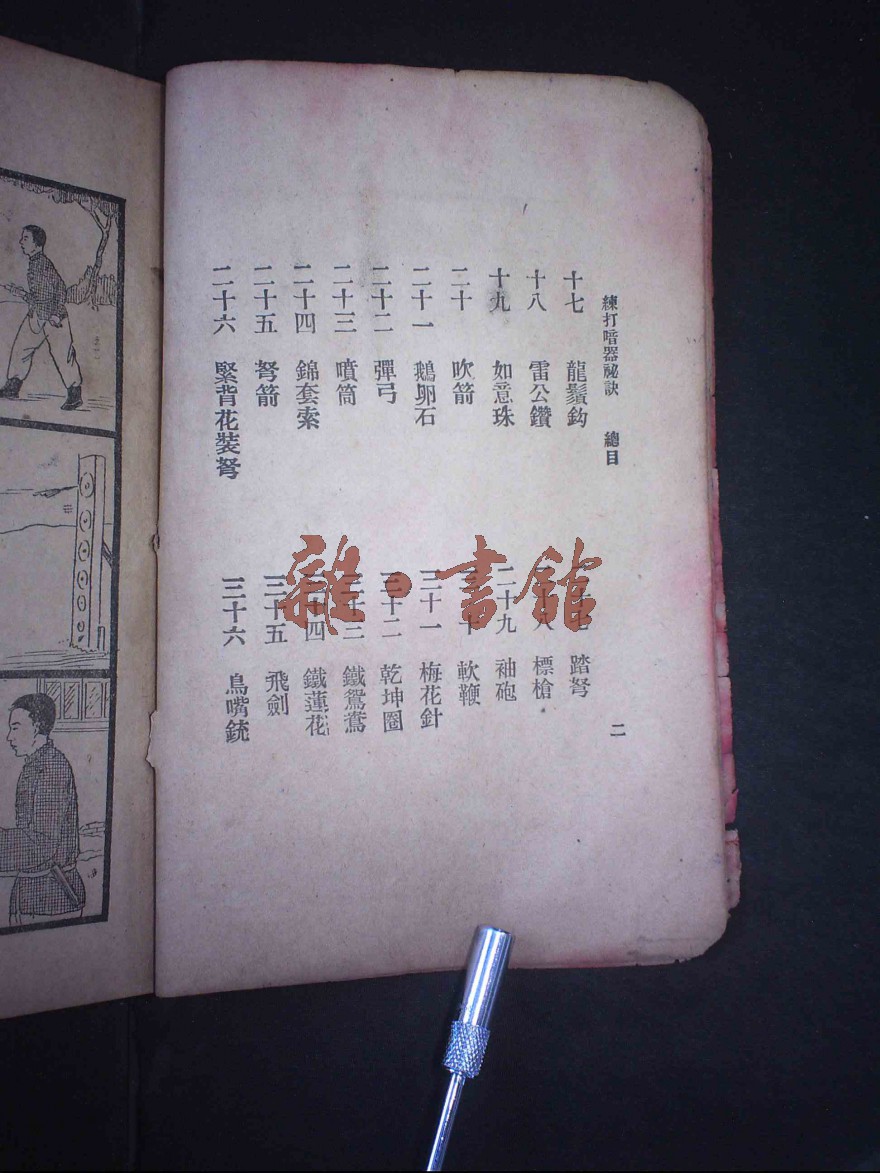 練打暗器祕訣　總目
十七　龍鬚鈎
十八　雷公鑽
十九　如意珠
二十　吹箭
二十一　鵝卵石
二十二　彈弓
二十三　噴筒
二十四　錦套索
二十五　弩箭
二十六　緊背花裝弩
二十七　踏弩
二十八　標槍
二十九　袖砲
三十　軟鞭
三十一　梅花針
三十二　乾坤圈
三十三　鐵鴛鴦
三十四　鐵蓮花
三十五　飛劍
三十六　鳥嘴銃
二
雜·書館